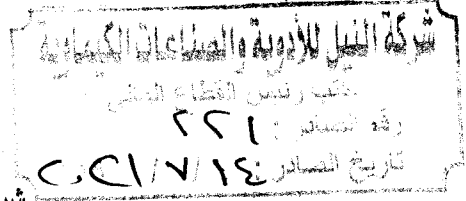 شركة النيل للأدوية والصناعات الكيماوية
مكتب رئيس القطاع المالى
رقم الصادر : ٢٢١
تاريخ الصادر : ١٤ / ٧ / ٢٠٢١